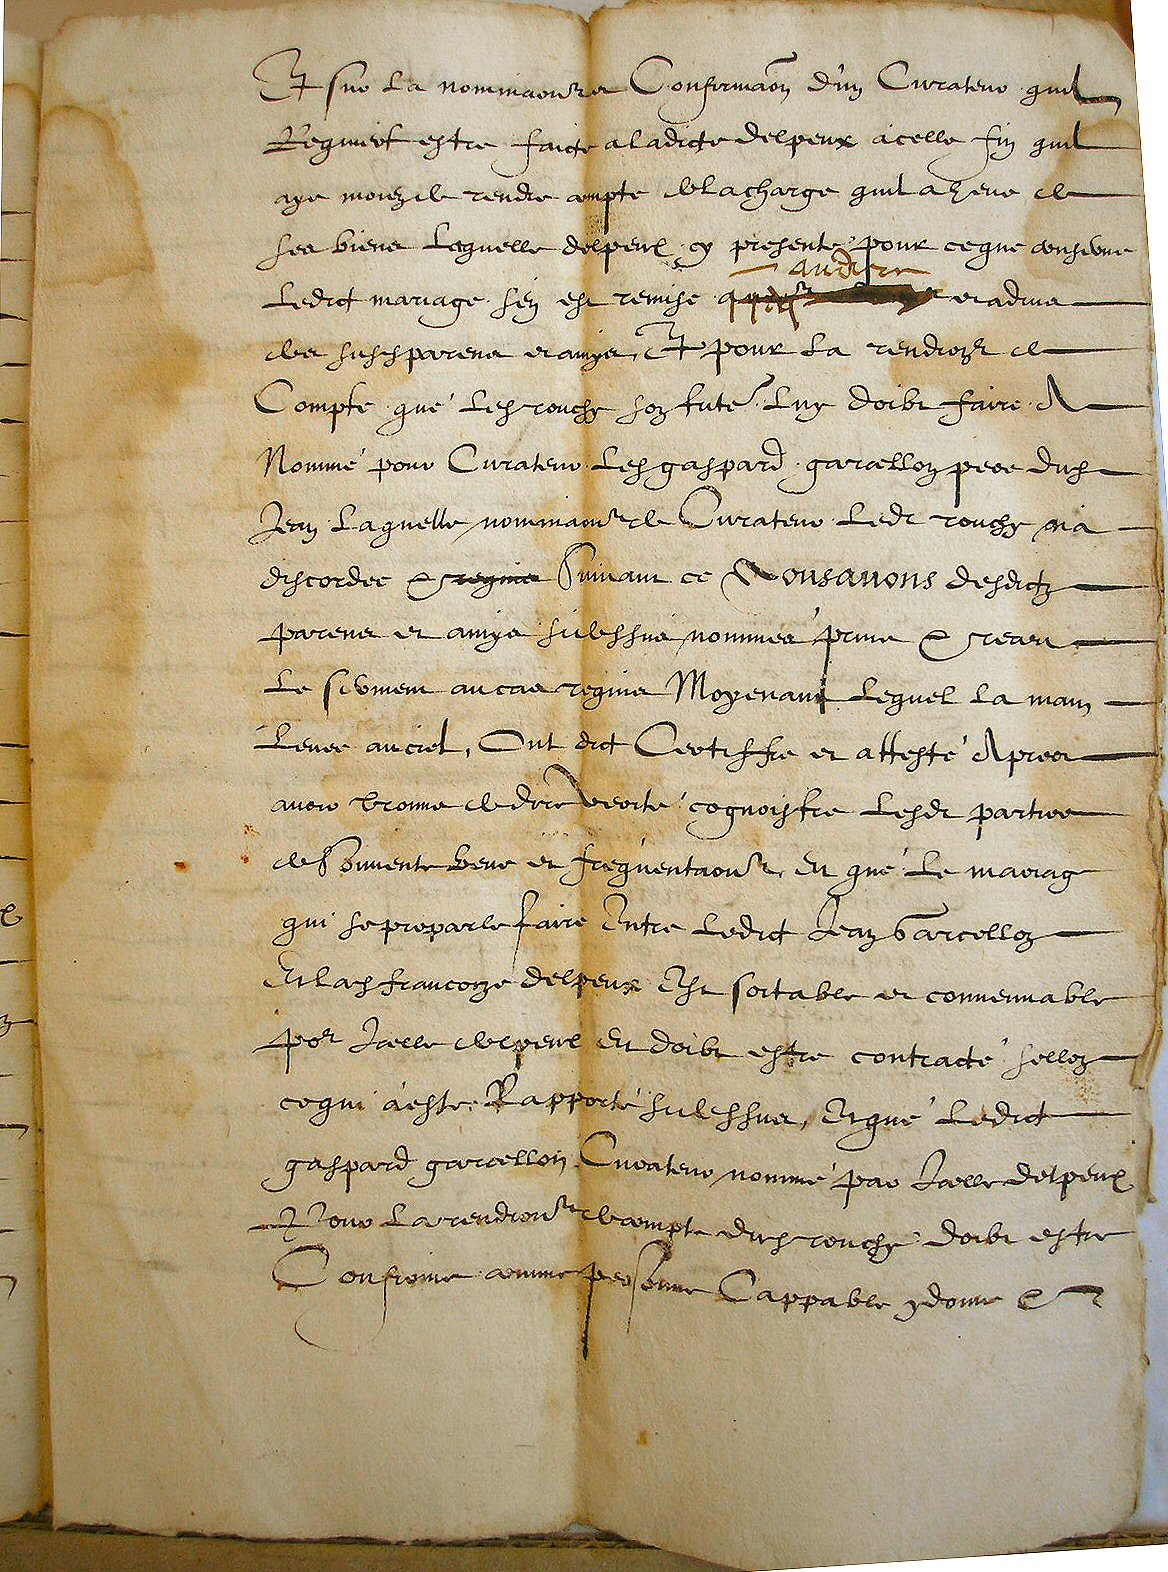 Et sur la nominaon et Confirmaon d'un Curateur quil
Requiert estre faicte a ladicte delpeux a icelle fin quil
aye moien de rendre compte de la charge quil a heue de
ses biens Laquelle delpeux cy presente pour ce que conserne
Ledict mariage s'en est remise a et advis
audire
de ses parens et amys, Et pour la rendron de
Compte que Led rouchy son tute.r luy doibt faire A
Nommé pour Curateur Led gaspard garcellon pere dud
Jean Laquelle nominaon de Curateur Ledt rouchy n'a
discordée Suivant ce Nous avons desdictz
parens et amys sudessus nommés prins & receu
Le serment au cas requis Moyenant lequel la main
Levée au ciel, Ont dict Certiffié et attesté Apres
avoir promis de dire verité cognoistre Lesdt parties
de Souvente veue et frequentaon Et que Le mariag
qui se proparle faire Entre Ledict Jean Garcellon
Et lad francoize delpeux Est sortable et convenuable
por Icelle delpeux Et doibt estre contracté sellon
ce qui a este Rapporté sudessus, Et que Ledict
gaspard garcellon Curateur nommé par Icelle delpeux
Pour La rendron de compte dud rouchy doibt estre
Confirmé comme personne Cappable ydoine &